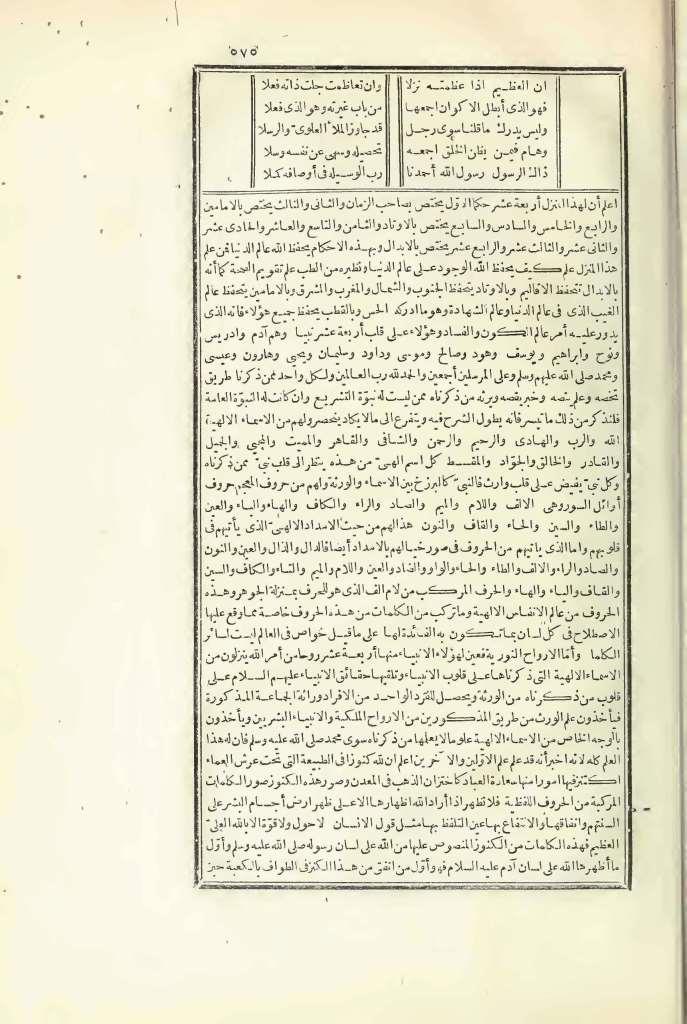 ٥٧٥
ان العظيم اذا عظمته نزلا وان تعاظمت جلت ذاته فعلا
فهو الذى أبطل الاكوان اجمعها من باب غيرته وهو الذى فعلا
وليس يدرك ما قلنا سوى رجل قد جاوز الملأ العلوىّ والرسلا
وهام فيمن يظن الخلق اجمعه تحصيله وسهى عن نفسه وسلا
ذاك الرسول رسول الله أحمدنا رب الوسيلة فى أوصافه كملا
اعلم أن لهذا المنزل أربعة عشر حكما الاول يختص بصاحب الزمان والثانى والثالث يختص بالامامين
والرابع والخامس والسادس والسابع يختص بالاوتاد والثامن والتاسع والعاشر والحادى عشر
والثانى عشر والثالث عشر والرابع عشر يختص بالابدال وبهذه الاحكام يحفظ الله عالم الدنيا فمن علم
هذا المنزل علم كيف يحفظ الله الوجود على عالم الدنيا ونظيره من الطب علم تقويم الصحة كما أنه
بالابدال تنحفظ الاقاليم وبالاوتاد ينحفظ الجنوب والشمال والمغرب والمشرق وبالامامين ينحفظ عالم
الغيب الذى فى عالم الدنيا وعالم الشهادة وهو ما ادركه الحس وبالقطب ينحفظ جميع هؤلاء فانه الذى
يدور عليه أمر عالم الكون والفساد وهؤلاء على قلب أربعة عشر نبيا وهم آدم وادريس
ونوح وابراهيم ويوسف وهود وصالح وموسى وداود وسليمان ويحيى وهارون وعيسى
ومحمد صلى الله عليهم وسلم وعلى المرسلين أجمعين والحمد لله رب العالمين ولكل واحد ممن ذكرنا طريق
تخصه وعلم ينصه وخبر يقصه ويرثه من ذكرناه ممن ليست له نبوّة التشريع وان كانت له النبوّة العامة
فلنذكر من ذلك ما تيسر فانه يطول الشرح فيه ويتفرع الى ما لا يكاد ينحصر ولهم من الاسماء الالهية
الله والرب والهادى والرحيم والرحمن والشافى والقاهر والمميت والمحيى والجميل
والقادر والخالق والجوّاد والمقسط كل اسم الهىّ من هذه ينظر الى قلب نبىّ ممن ذكرناه
وكل نبىّ يفيض على قلب وارث فالنبىّ كالبرزخ بين الاسماء والورثة ولهم من حروف المعجم حروف
أوائل السور وهى الالف واللام والميم والصاد والراء والكاف والهاء والياء والعين
والطاء والسين والحاء والقاف والنون هذا لهم من حيث الامداد الالهىّ الذى يأتيهم فى
قلوبهم واما الذى يأتيهم من الحروف فى صور خيالهم بالامداد أيضا فالدال والذال والعين والنون
والصاد والراء والالف والطاء والحاء والواو والضاد والغين واللام والميم والتاء والكاف والسين
والقاف والياء والهاء والحرف المركب من لام الف الذى هو للحرف بمنزلة الجوهر وهذه
الحروف من عالم الانفاس الالهية وما تركب من الكلمات من هذه الحروف خاصة مما وقع عليها
الاصطلاح فى كل لسان بما تكون به الفائدة لها على ما قيل خواص فى العالم ليست لسائر
الكلما وأمّا الارواح النورية فعين لهؤلاء الانبياء منها أربعة عشر روحا من أمر الله ينزلون من
الاسماء الالهية التى ذكرناها على قلوب الانبياء وتلقيها حقائق الانبياء عليهم السلام على
قلوب من ذكرناه من الورثة ويحصل للفرد الواحد من الافراد وراثة الجماعة المذكورة
فيأخذون علم الورث من طريق المذكورين من الارواح الملكية والانبياء البشريين ويأخذون
بالوجه الخاص من الاسماء الالهية علوما لا يعلمها من ذكرناه سوى محمد صلى الله عليه وسلم فان له هذا
العلم كله لانه أخبر أنه قد علم علم الاوّلين والآخرين اعلم ان لله كنوزا فى الطبيعة التى تحت عرش العماء
اكتنز فيها امورا منها سعادة العباد كاختزان الذهب فى المعدن وصور هذه الكنوز صور الكلمات
المركبة من الحروف اللفظية فلا تظهر اذا أراد الله اظهارها الا على ظهر ارض أجسام البشر على
السنتهم وانفاقها والانتفاع بها عين التلفظ بها مثل قول الانسان لا حول ولا قوّة الا بالله العلىّ
العظيم فهذه الكلمات من الكنوز المنصوص عليها من الله على لسان رسوله صلى الله عليه وسلم وأوّل
ما أظهرها الله على لسان آدم عليه السلام فهو أوّل من انفق من هذا الكنز فى الطواف بالكعبة حين